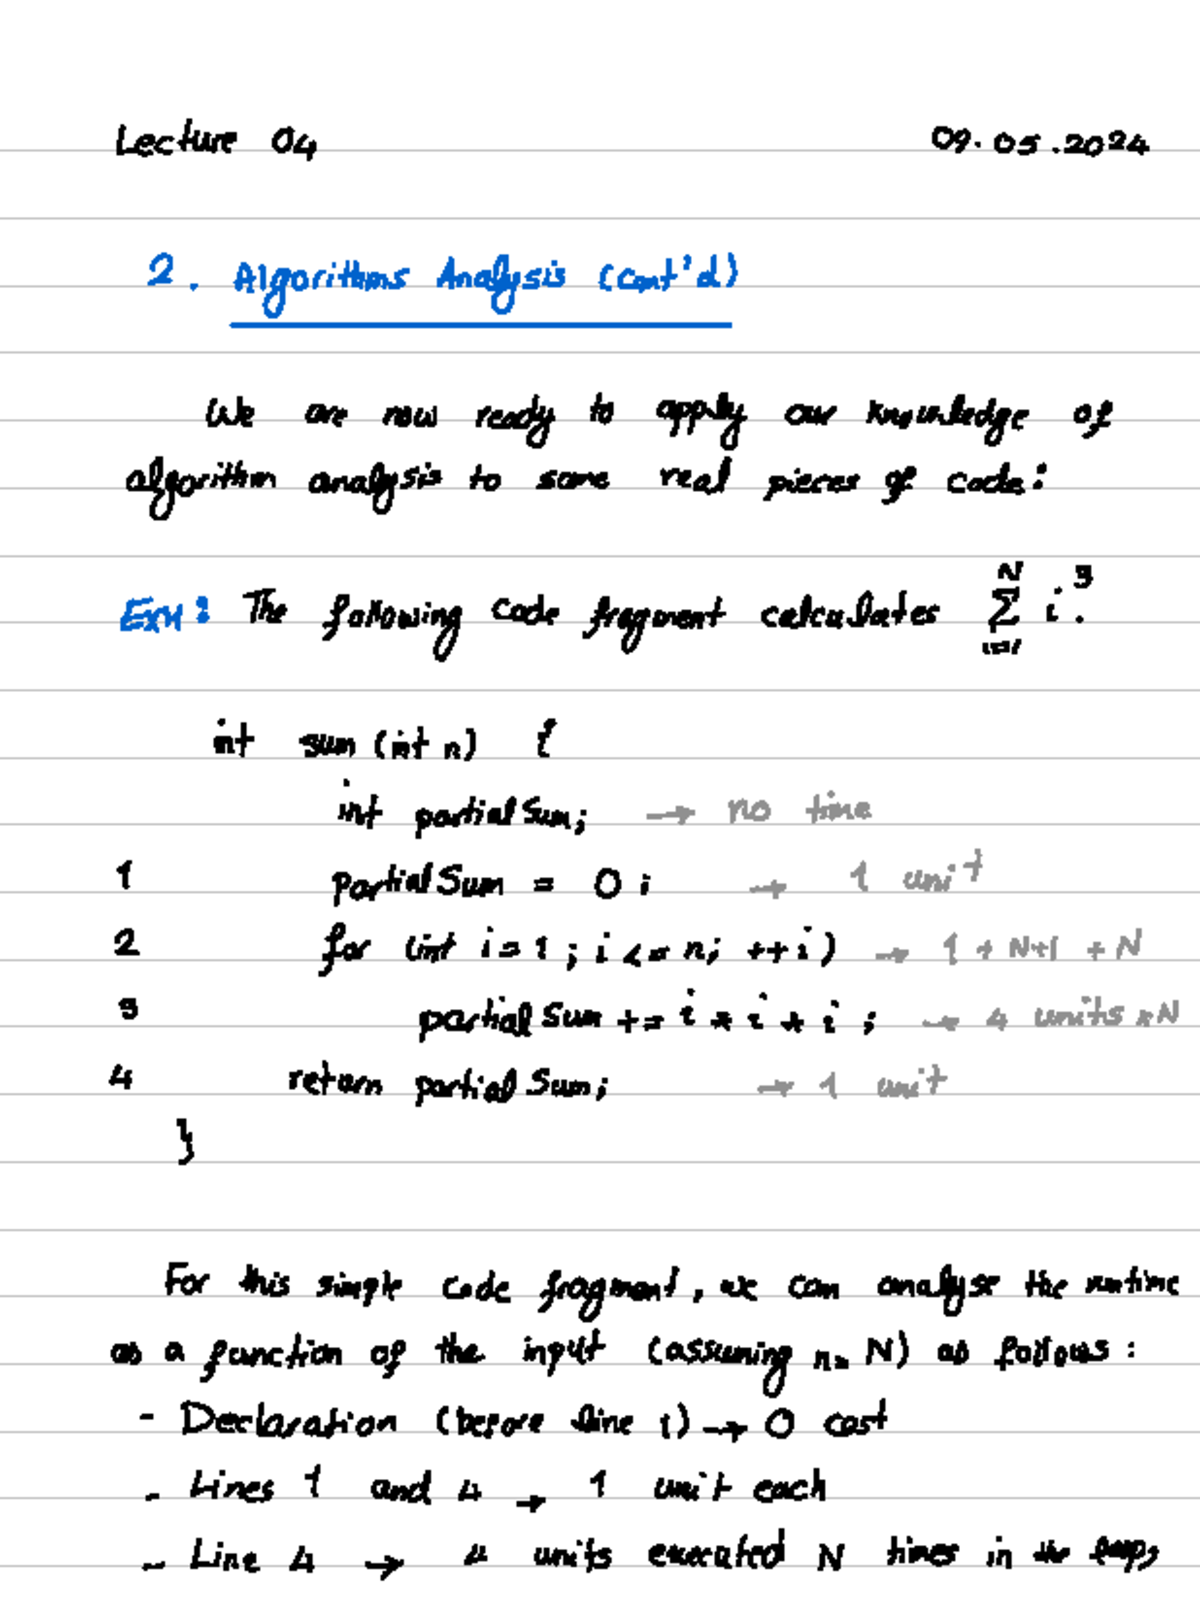 Lecture 04 09.05.2024
2. Algorithms Analysis (cont'd)
We are now ready to apply our knowledge of
algorithm analysis to some real pieces of code:
Exm: The following code fragment calculates N ∑ i=1 i³.
int sum (int n) {
int partialSum; → no time
1 partialSum = 0; → 1 unit
2 for (int i=1; i <= n; ++i) → 1 + N+1 + N
3 partialSum += i * i * i; → 4 units * N
4 return partialSum; → 1 unit
}
For this simple code fragment, we can analyse the runtime
as a function of the input (assuming n = N) as follows:
- Declaration (before line 1) → 0 cost
- Lines 1 and 4 → 1 unit each
- Line 4 → 4 units executed N times in the loop,